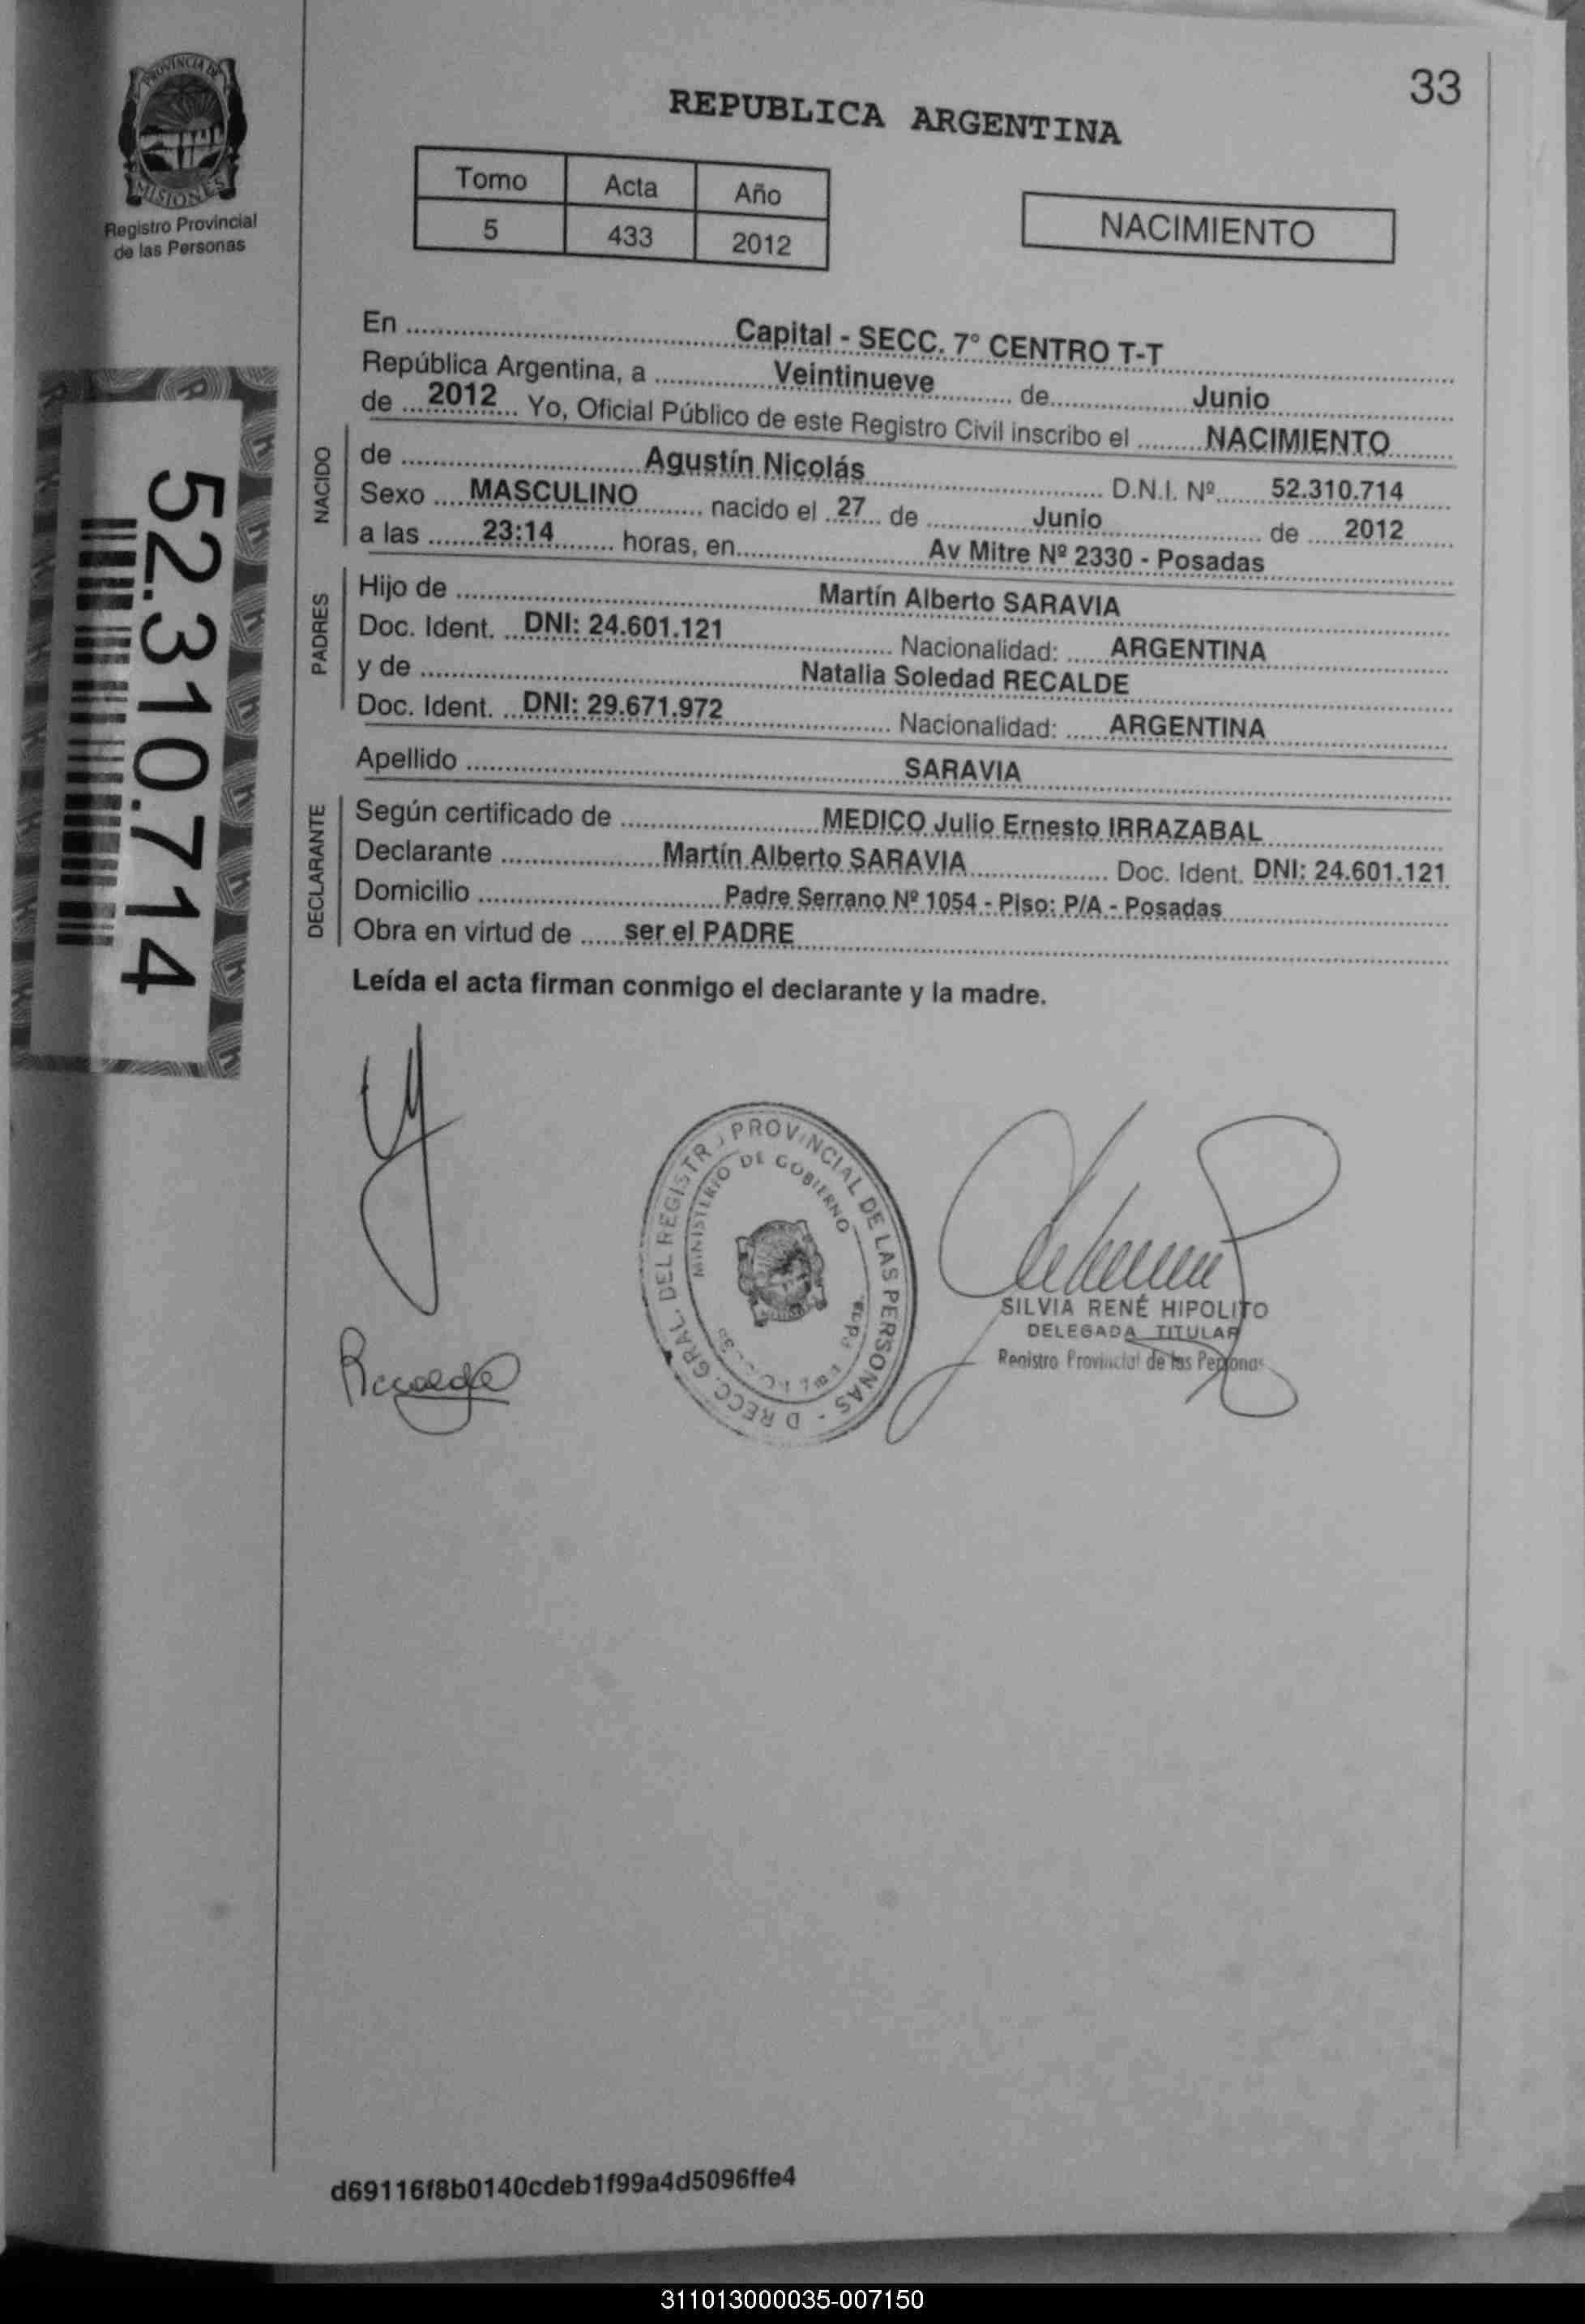 PROVINCIA DE
MISIONES
Registro Provincial
de las Personas
33
REPUBLICA ARGENTINA
Tomo Acta Año
5 433 2012
NACIMIENTO
En Capital - SECC. 7° CENTRO T-T
República Argentina, a Veintinueve de Junio
de 2012 Yo, Oficial Público de este Registro Civil inscribo el NACIMIENTO
NACIDO
de Agustín Nicolás D.N.I. Nº 52.310.714
Sexo MASCULINO nacido el 27 de Junio de 2012
a las 23:14 horas, en Av Mitre Nº 2330 - Posadas
PADRES
Hijo de Martín Alberto SARAVIA
Doc. Ident. DNI: 24.601.121 Nacionalidad: ARGENTINA
y de Natalia Soledad RECALDE
Doc. Ident. DNI: 29.671.972 Nacionalidad: ARGENTINA
Apellido SARAVIA
DECLARANTE
Según certificado de MEDICO Julio Ernesto IRRAZABAL
Declarante Martín Alberto SARAVIA Doc. Ident. DNI: 24.601.121
Domicilio Padre Serrano Nº 1054 - Piso: P/A - Posadas
Obra en virtud de ser el PADRE
Leída el acta firman conmigo el declarante y la madre.
52.310.714
DIRECC. GRAL. DEL REGISTRO PROVINCIAL DE LAS PERSONAS
MINISTERIO DE GOBIERNO
SILVIA RENÉ HIPOLITO
DELEGADA TITULAR
Registro Provincial de las Personas
d69116f8b0140cdeb1f99a4d5096ffe4
311013000035-007150